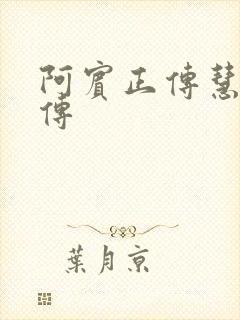 阿賓正傳慧
傳
葉月京